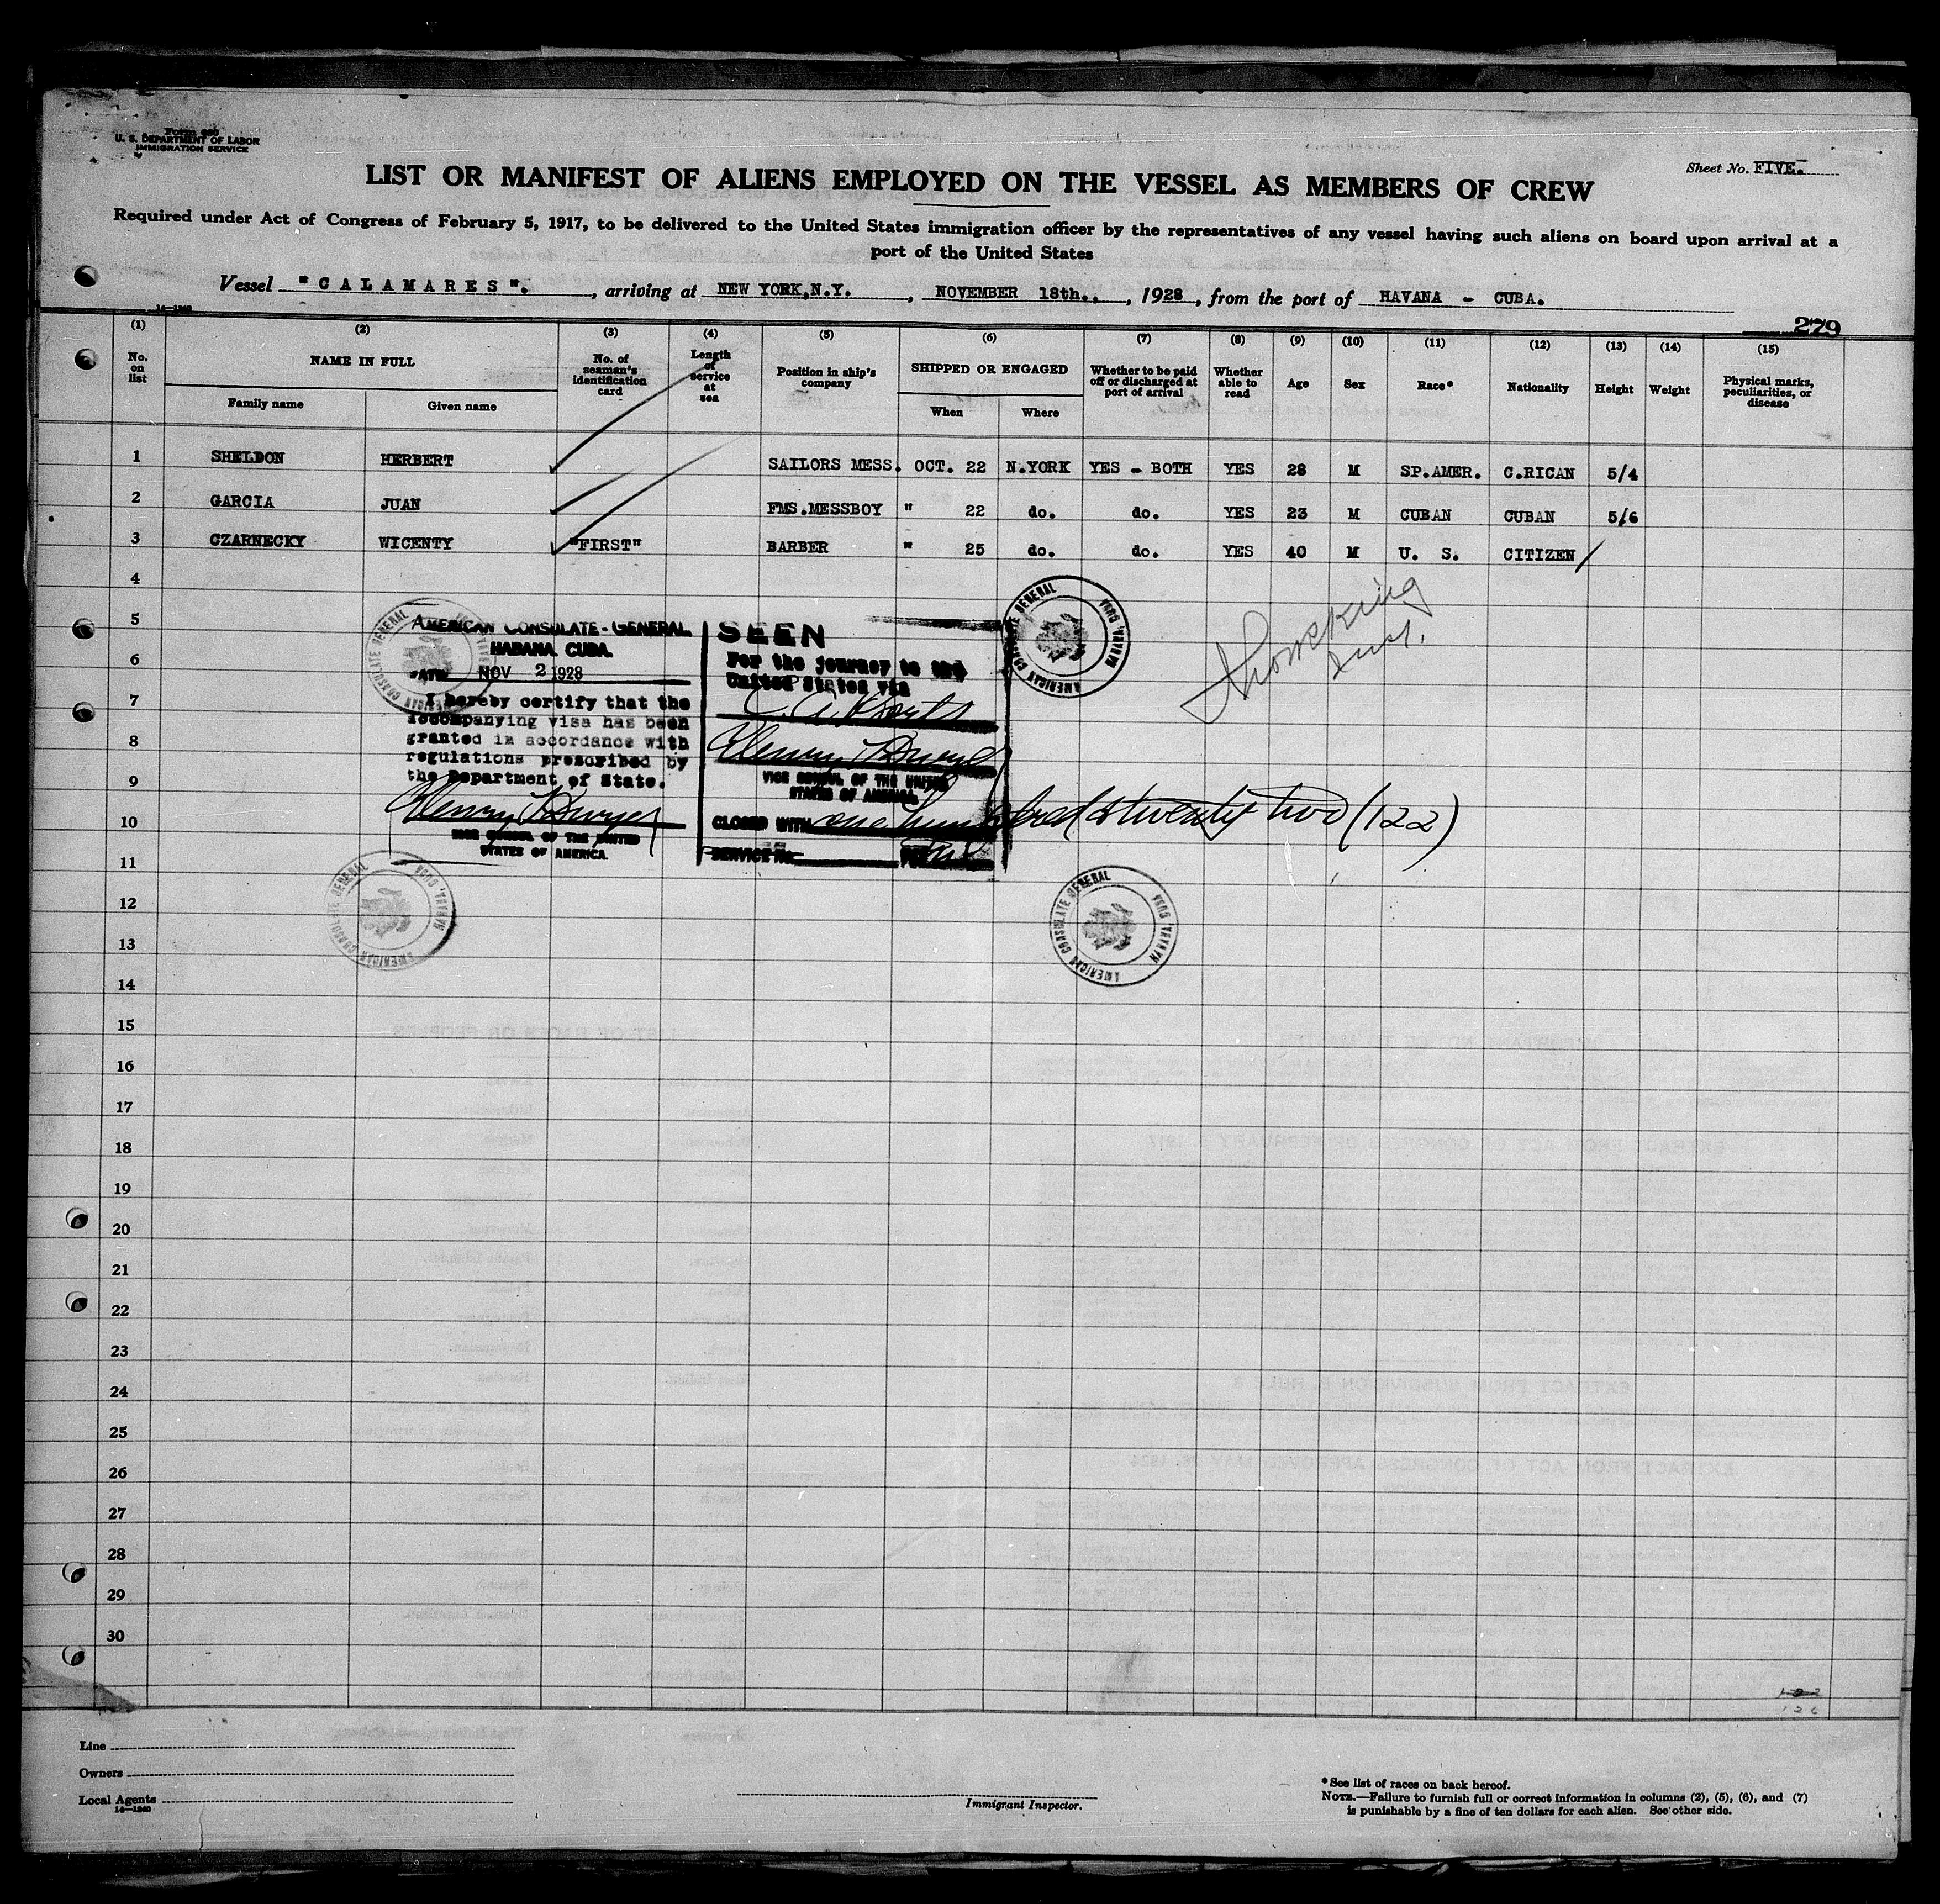 Form 680
U. S. DEPARTMENT OF LABOR
IMMIGRATION SERVICE
Sheet No. FIVE.
LIST OR MANIFEST OF ALIENS EMPLOYED ON THE VESSEL AS MEMBERS OF CREW
Required under Act of Congress of February 5, 1917, to be delivered to the United States immigration officer by the representatives of any vessel having such aliens on board upon arrival at a
port of the United States
Vessel "CALAMARES"., arriving at NEW YORK,N.Y., NOVEMBER 18th., 1928, from the port of HAVANA - CUBA.
14—1240
279
(1) (2) (3) (4) (5) (6) (7) (8) (9) (10) (11) (12) (13) (14) (15)
No. on list NAME IN FULL No. of seaman's identification card Length of service at sea Position in ship's company SHIPPED OR ENGAGED Whether to be paid off or discharged at port of arrival Whether able to read Age Sex Race* Nationality Height Weight Physical marks, peculiarities, or disease
Family name Given name When Where
1 SHELDON HERBERT SAILORS MESS. OCT. 22 N.YORK YES - BOTH YES 28 M SP.AMER. C.RICAN 5/4
2 GARCIA JUAN FMS.MESSBOY " 22 do. do. YES 23 M CUBAN CUBAN 5/6
3 CZARNECKY WICENTY "FIRST" BARBER " 25 do. do. YES 40 M U. S. CITIZEN
4
5
6
7
8
9
10
11
12
13
14
15
16
17
18
19
20
21
22
23
24
25
26
27
28
29
30
AMERICAN CONSULATE-GENERAL
HABANA, CUBA.
DATE NOV 2 1928
I hereby certify that the
accompanying visa has been
granted in accordance with
regulations prescribed by
the Department of State.
VICE CONSUL OF THE UNITED
STATES OF AMERICA.
SEEN
For the journey to the
United States via
VICE CONSUL OF THE UNITED
STATES OF AMERICA.
CLOSED WITH one hundred & twenty two (122)
SERVICE No.
AMERICAN CONSULATE GENERAL HABANA, CUBA
AMERICAN CONSULATE GENERAL HABANA, CUBA
AMERICAN CONSULATE GENERAL HABANA, CUBA
AMERICAN CONSULATE GENERAL HABANA, CUBA
Line
Owners
Local Agents
14—1240
Immigrant Inspector.
*See list of races on back hereof.
NOTE.—Failure to furnish full or correct information in columns (2), (5), (6), and (7)
is punishable by a fine of ten dollars for each alien. See other side.